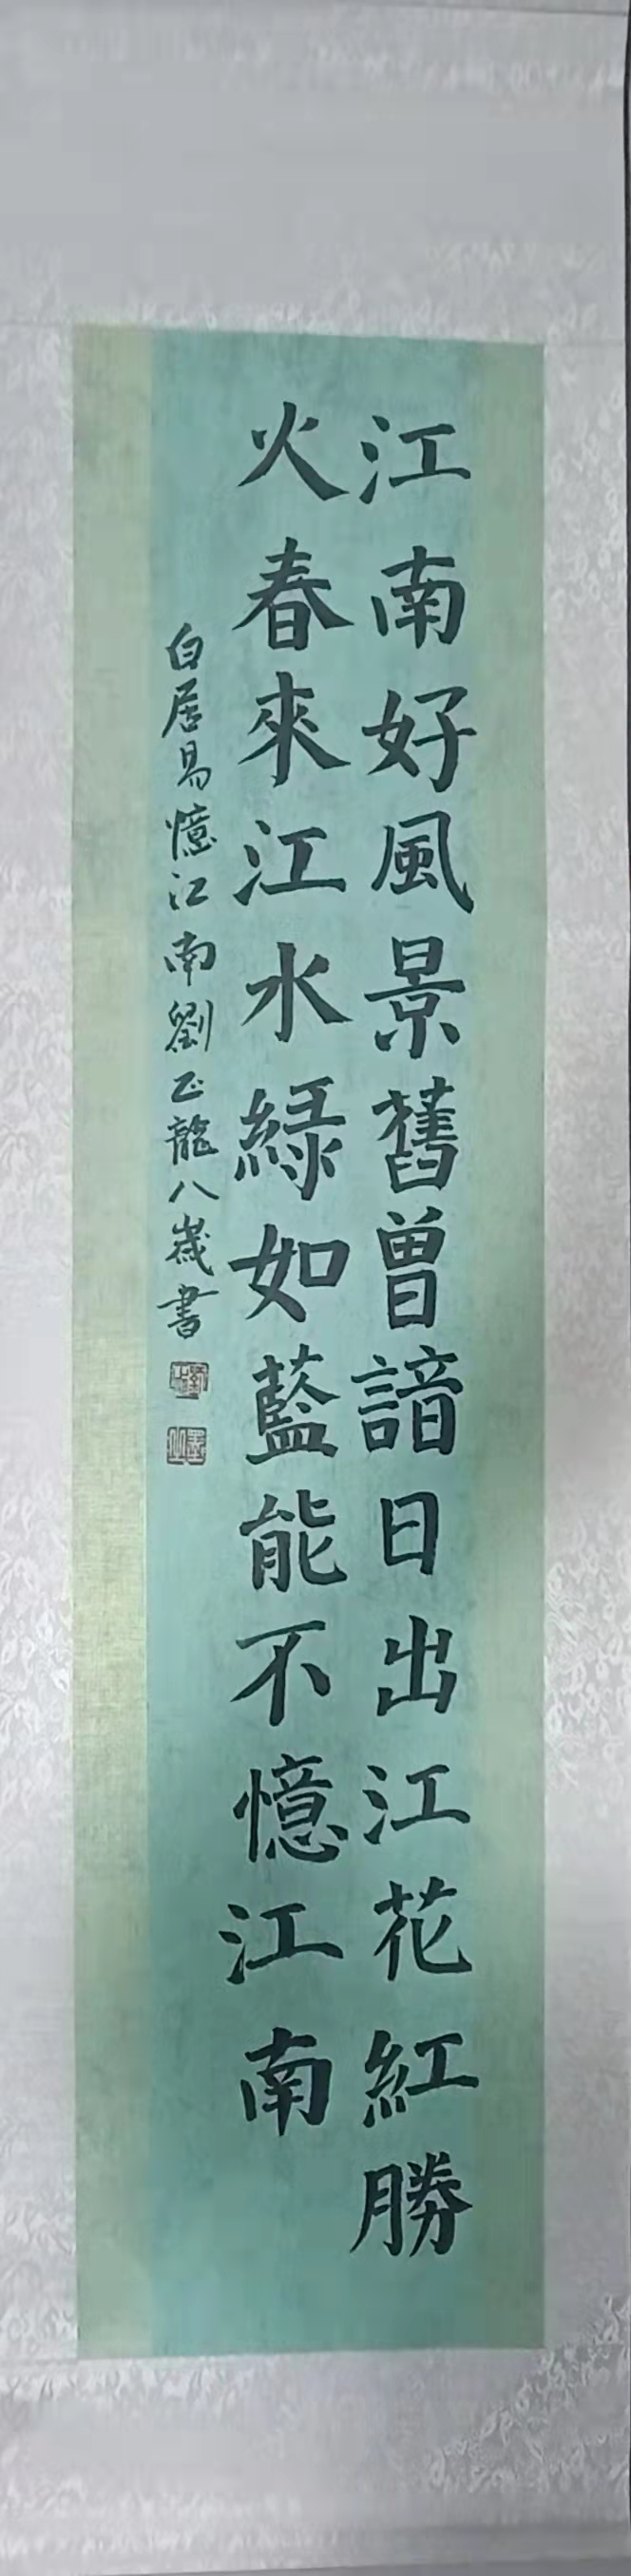 江南好風景舊曾諳日出江花紅勝
火春來江水綠如藍能不憶江南
白居易憶江南劉正龍八歲書